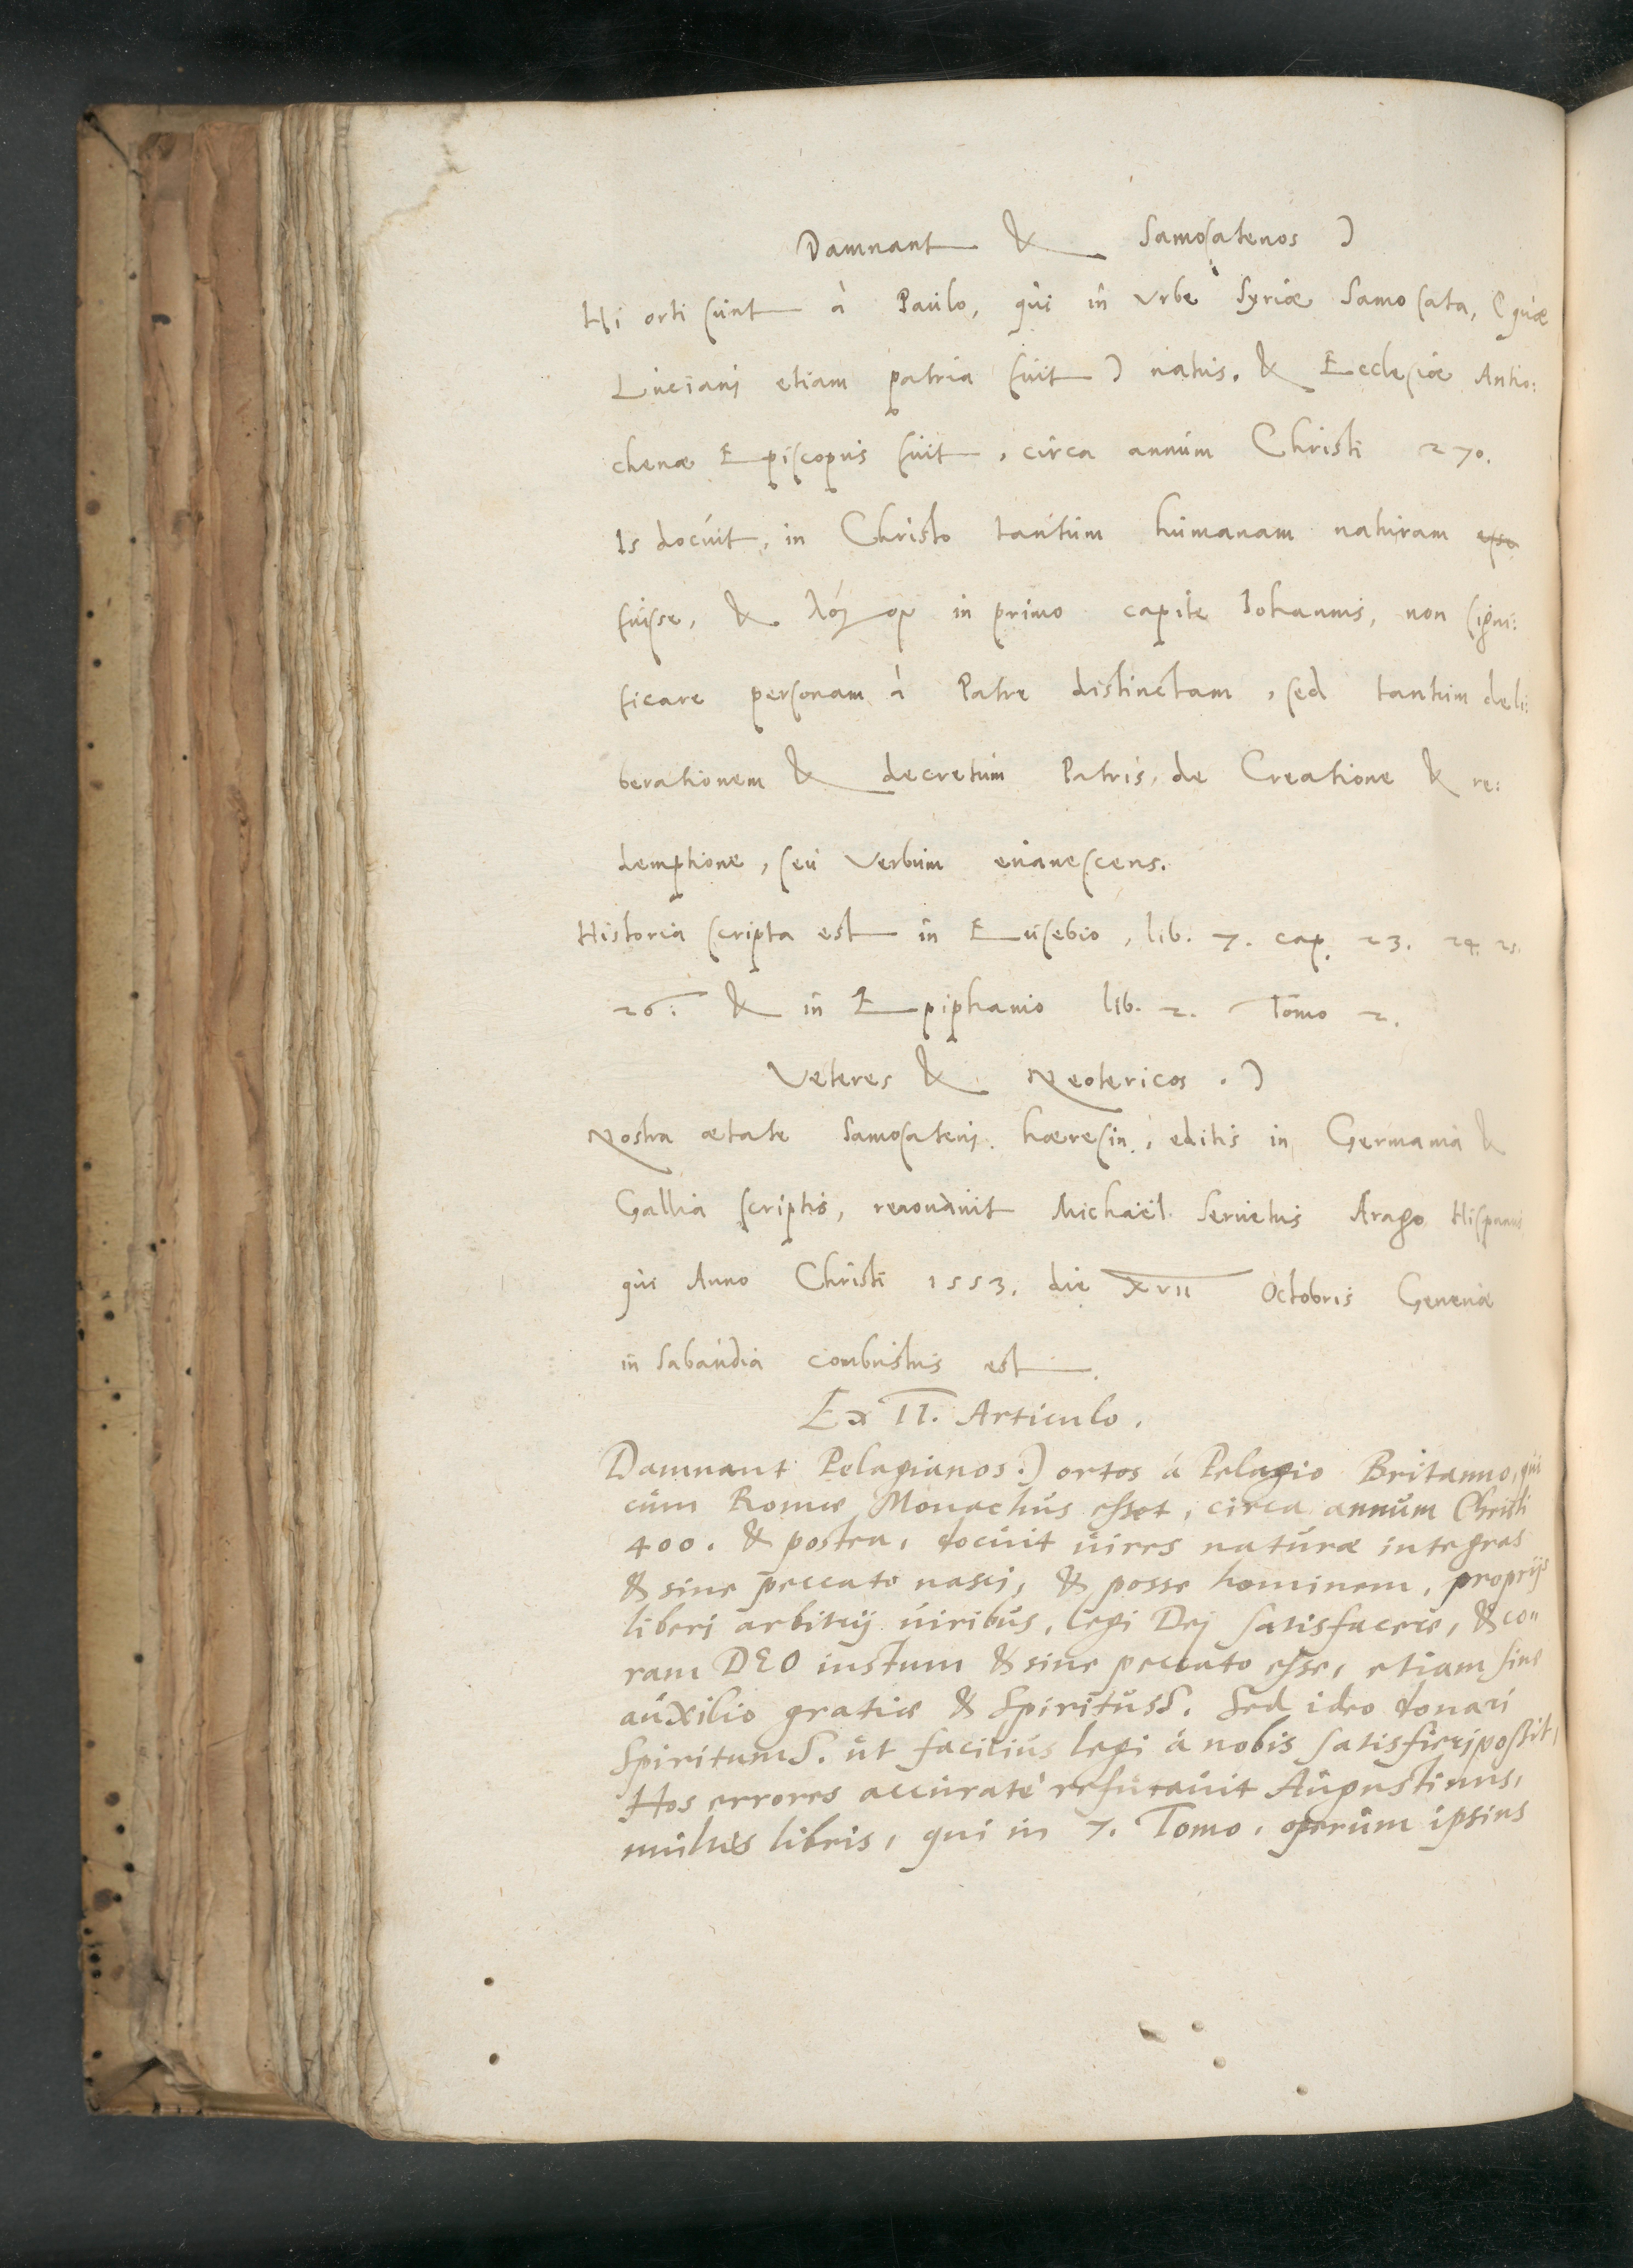 Damnant & Samosatenos )
Hi orti sunt à Paulo, qui in Vrbe Syriæ Samosata, (quæ
Luciani etiam patria fuit) natus. & Ecclesiæ Antio:
chenæ Episcopus fuit, circa annum Christi 270.
Is docuit, in Christo tantum humanam naturam esse
fuisse, & λόγον in primo capite Iohannis, non signi:
ficare personam à Patre distinctam, sed tantum deli:
berationem & decretum Patris, de Creatione & re:
demptione, seu Verbum euanescens.
Historia scripta est in Eusebio, lib. 7. cap. 23. 24. 25.
26. & in Epiphanio lib. 2. Tomo 2.
Veteres & Neotericos. )
Nostra ætate Samosateni hæresin, editis in Germania &
Gallia scriptis, renouauit Michaël Seruetus Arago Hispanus
qui Anno Christi 1553. die XVII Octobris Geneuæ
in Sabaudia combustus est.
Ex II. Articulo.
Damnant Pelagianos.) ortos á Pelagio Britanno, qui
cum Romæ Monachus esset, circa annum Christi
400. & postea, docuit uires naturæ integras
& sine peccato nasci, & posse hominem, proprijs
liberi arbitrij uiribus, legi Dei satisfacere, & co„
ram DEO iustum & sine peccato esse, etiam sine
auxilio gratiæ & Spiritus S. Sed ideo donari
Spiritum S. ut facilius legi á nobis satisfieri possit,
Hos errores accuratè refutauit Augustinus,
multis libris, qui in 7. Tomo, operum ipsius